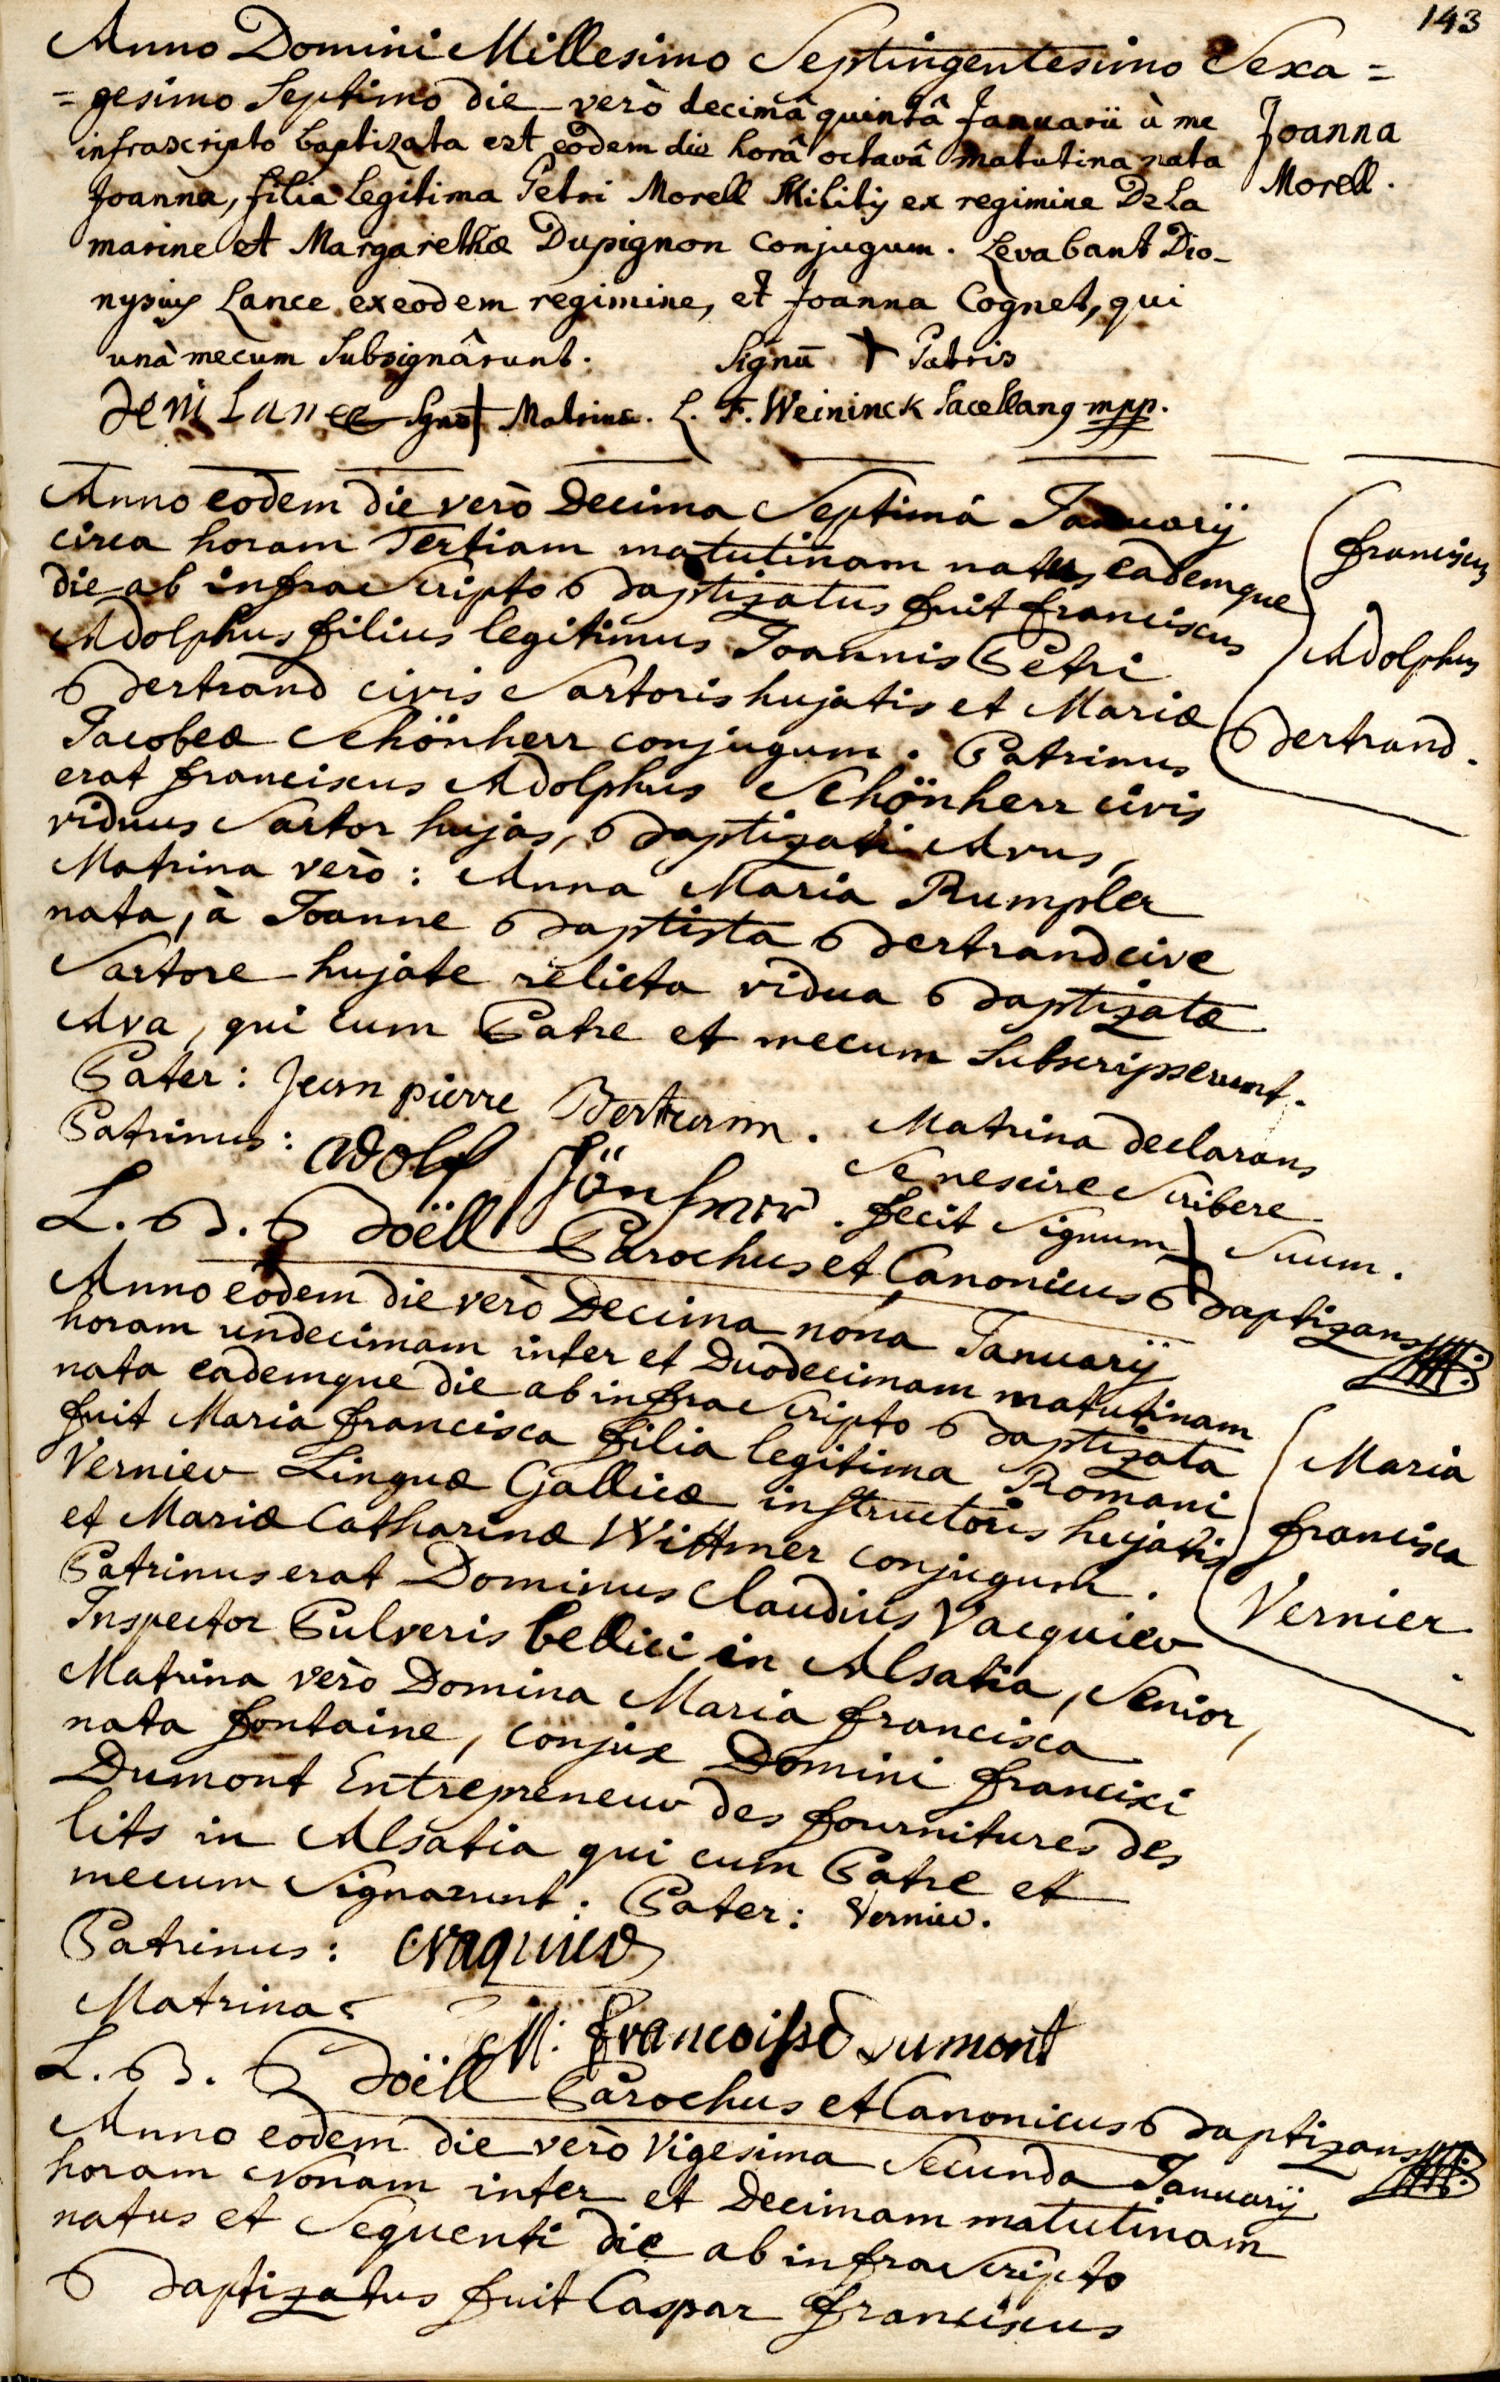 143
Anno Domini Millesimo Septingentesimo Sexa=
=gesimo Septimo die verò decimâ quintâ Januarii à me
infrascripto baptizata est eodem die horâ octavâ matutina nata
Joanna, filia legitima Petri Morell Militis ex regimine De La
marine et Margarethæ Dupignon conjugum. Levabant Dio-
nysius Lance ex eodem regimine, et Joanna Cognet, qui
unà mecum Subsignârunt. Signū + Patris
deni Lance Sgnū + Matrinæ. L. F. Weininck Sacellanus mpp.
Joanna
Morell.
Anno eodem die verò Decima Septimâ Januarij
circa horam Tertiam matutinam natus eademque
die ab infrascripto Baptizatus fuit franciscus
Adolphus filius legitimus Joannis Petri
Bertrand civis Sartoris hujatis et Mariæ
Jacobeæ Schönherr conjugum. Patrinus
erat franciscus Adolphus Schönherr civis
viduus Sartor hujas, Baptizati Avus,
Matrina verò: Anna Maria Rumpler
nata, à Joanne Baptista Bertrand cive
Sartore hujate relicta vidua Baptizatæ
Ava, qui cum Patre et mecum Subscripserunt.
Pater: Jean pierre Bertram. Matrina declarans
Patrinus: adolf Schönherr. Se nescire Scribere
fecit Signum + Suum.
L. B. Boëll Parochus et Canonicus Baptizans
franciscus
Adolphus
Bertrand.
Anno eodem die verò Decima nona Januarij
horam undecimam inter et Duodecimam matutinam
nata eademque die ab infrascripto Baptizata
fuit Maria francisca filia legitima Romani
Vernier Linguæ Gallicæ instructoris hujatis
et Mariæ Catharinæ Wittmer conjugum.
Patrinus erat Dominus Claudius Vacquier
Inspector Pulveris bellici in Alsatia, Senior,
Matrina verò Domina Maria francisca
nata fontaine, conjux Domini francisci
Dumont Entrepreneur des fournitures des
lits in Alsatia qui cum Patre et
mecum Signarunt: Pater: Vernier.
Patrinus: Vaquier
Matrina: M: francoisse Dumont
L. B. Boëll Parochus et Canonicus Baptizans
Maria
francisca
Vernier
Anno eodem die verò Vigesima Secunda Januarij
horam Nonam inter et Decimam matutinam
natus et Sequenti die ab infrascripto
Baptizatus fuit Caspar franciscus